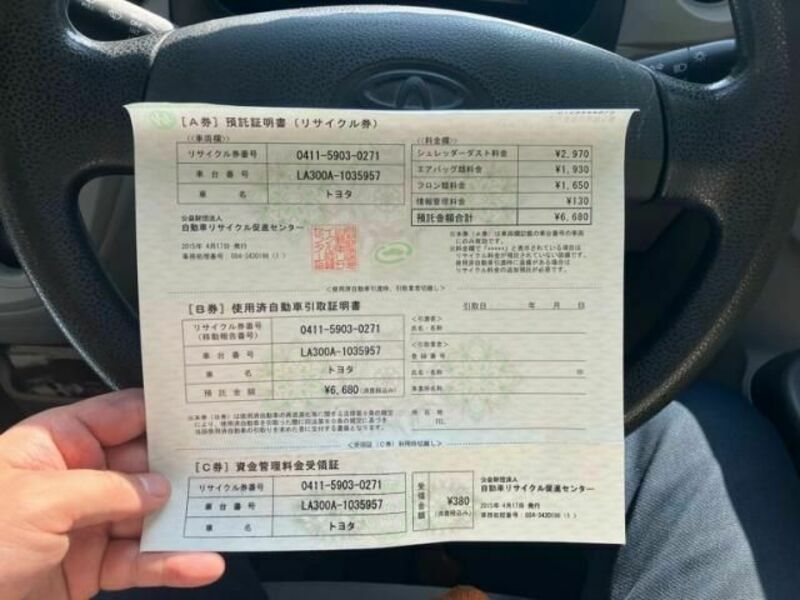 [A券] 預託証明書（リサイクル券）
<車両欄>
リサイクル券番号 0411-5903-0271
車台番号 LA300A-1035957
車名 トヨタ
公益財団法人
自動車リサイクル促進センター
2015年 4月17日 発行
<料金欄>
シュレッダーダスト料金 ¥2,970
エアバッグ類料金 ¥1,930
フロン類料金 ¥1,650
情報管理料金 ¥130
預託金額合計 ¥6,680
[B券] 使用済自動車引取証明書
リサイクル券番号
(移動報告番号) 0411-5903-0271
車台番号 LA300A-1035957
車名 トヨタ
預託金額 ¥6,680(消費税込み)
引取日 年 月 日
<引渡者>
氏名・名称
<引取業者>
登録番号
氏名・名称 ㊞
事業所名称
所在地
TEL
<受領証（C券）利用時切離し>
[C券] 資金管理料金受領証
リサイクル券番号 0411-5903-0271
車台番号 LA300A-1035957
車名 トヨタ
受領金額 ¥380
(消費税込み)
公益財団法人
自動車リサイクル促進センター
2015年 4月17日 発行